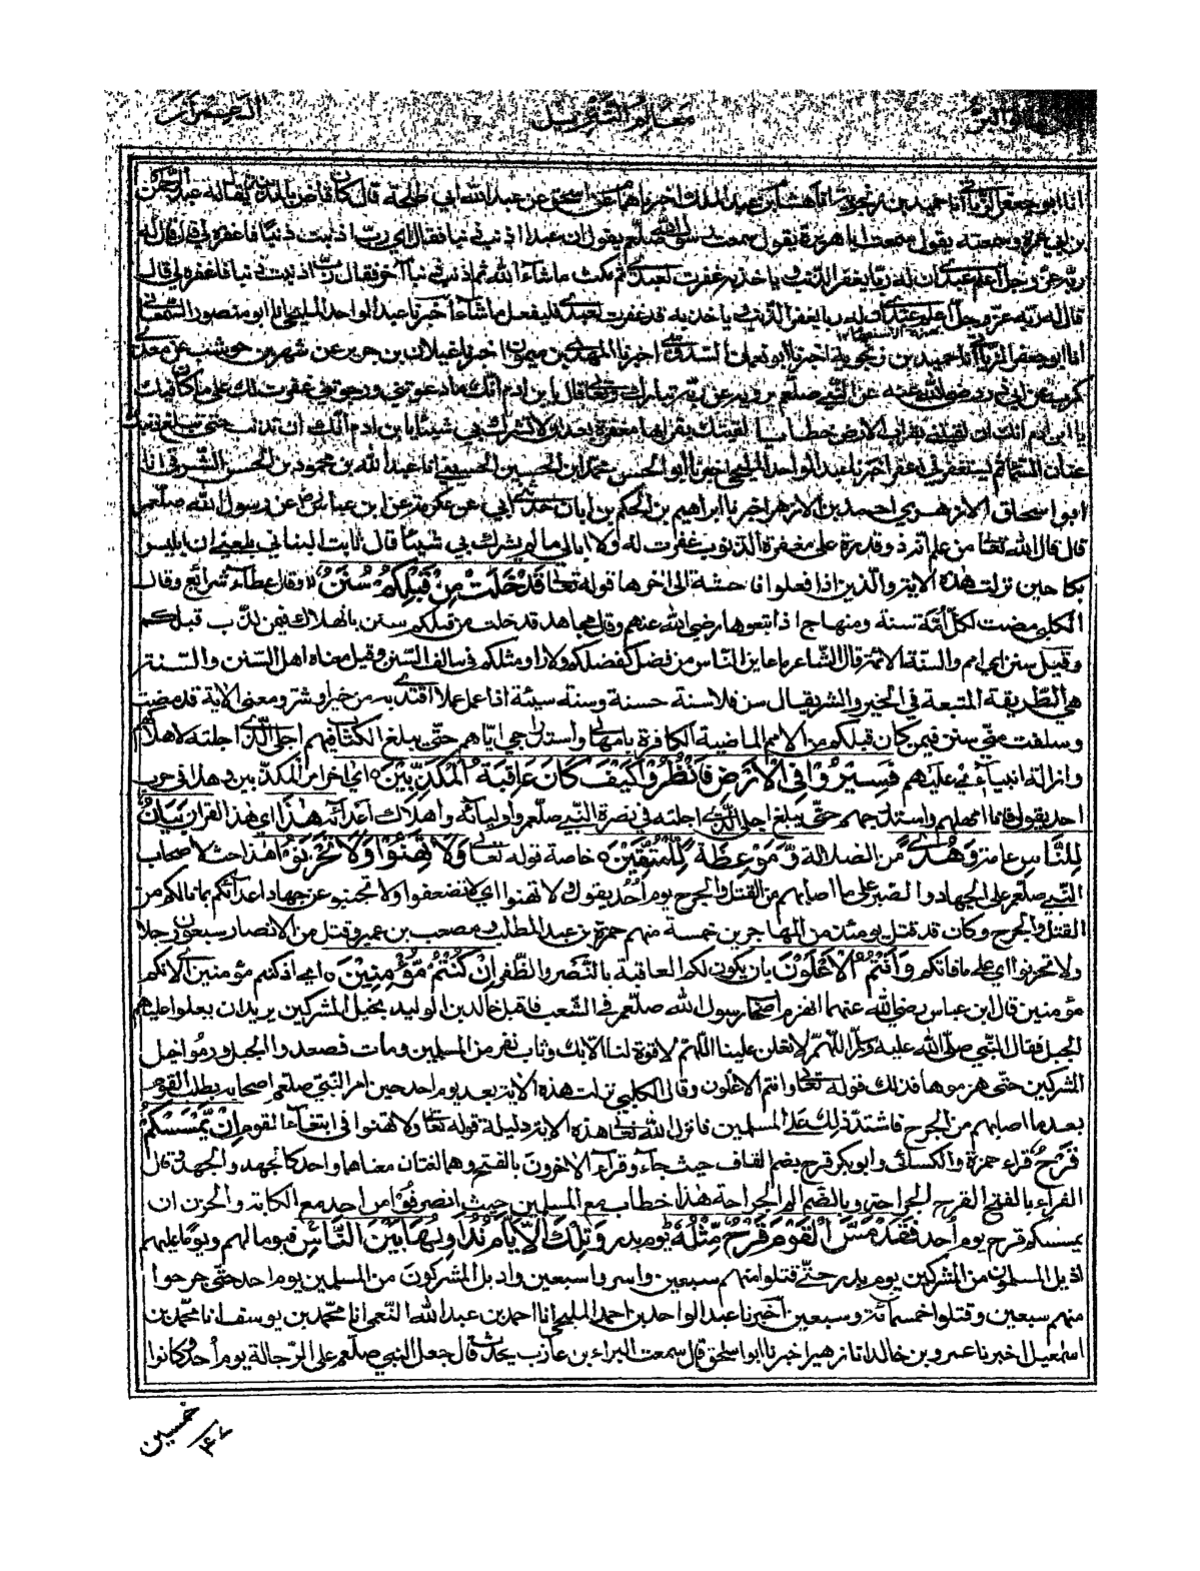 معالم التنزيل
انا ابو جعفر الرياني انا حميد بن زنجويه انا هشام بن عبد الملك اخبرنا همام عن اسحق عن عبد الله ابي طلحة قال كان قاص بالمدينة يقال له عبد الرحمن
بن ابي عمرة وسمعته يقول سمعت ابا هريرة يقول سمعت رسول الله صلعم يقول ان عبدا اذنب ذنبا فقال اي رب اذنبت ذنبا فاغفره لي قال فقال له
ربه عز وجل اعلم عبدي ان له ربا يغفر الذنب وياخذ به غفرت لعبدي ثم مكث ما شاء الله ثم اذنب ذنبا آخر فقال رب اذنبت ذنبا فاغفره لي قال
قال له ربه عز وجل اعلم عبدي ان له ربا يغفر الذنب وياخذ به قد غفرت لعبدي فليفعل ما شاء اخبرنا عبد الواحد المليحي انا ابو منصور السمعاني
انا ابو جعفر الرياني انا حميد بن زنجوية اخبرنا ابو نعمان السدوسي اخبرنا المهدي بن ميمون اخبرنا غيلان بن جرير عن شهر بن حوشب عن معدي
كرب عن ابي ذر رضي الله عنه عن النبي صلعم يرويه عن ربه تبارك وتعالى قال يا ابن ادم انك ما دعوتني ورجوتني غفرت لك على ما كان فيك
يا ابن ادم انك ان لقيتني بقراب الارض خطايا لقيتك بقرابها مغفرة بعد ان لا تشرك بي شيئا يا بن ادم انك ان تذنب حتى تبلغ ذنبك
عنان السماء ثم تستغفرني اغفر اخبرنا عبد الواحد المليحي اخبرنا ابو الحسن محمد بن الحسين الحسيني انا عبد الله بن محمود بن الحسن الشرقي انا
ابو اسحاق الازهري احمد بن الازهر اخبرنا ابراهيم بن الحكم بن ابان حدثني ابي عن عكرمة عن ابن عباس رض عن رسول الله صلعم
قال قال الله تعالى من علم اني ذو قدرة على مغفرة الذنوب غفرت له ولا ابالي ما لم يشرك بي شيئا قال ثابت البناني بلغني ان ابليس
بكا حين نزلت هذه الاية والذين اذا فعلوا فاحشة الى اخرها قوله تعالى قَدْ خَلَتْ مِنْ قَبْلِكُمْ سُنَنٌ وقال عطاء شرائع وقال
الكلبي مضت لكل امة سنة ومنهاج اذا تبعوها رضي الله عنهم وقال مجاهد قد خلت من قبلكم سنن بالهلاك فيمن كذب قبلكم
وقيل سنن اي امم والسنة الامة قال الشاعر ما عاين الناس من فضل كفضلكم ولا راو مثلكم في سالف السنن وقيل معناه اهل السنن والسنة
هي الطريقة المتبعة في الخير والشر يقال سن فلا سنة حسنة وسنة سيئة اذا عمل عملا اقتدي به من خير او شر ومعنى الاية قد مضت
وسلفت مني سنن فيمن كان قبلكم من الامم الماضية الكافرة بامهالي واستدراجي اياهم حتى يبلغ الكتاب فيهم اجلي الذي اجلته لاهلاكهم
وازالة انبياءي عليهم فَسِيْرُوْا فِي الْاَرْضِ فَانْظُرُوْا كَيْفَ كَانَ عَاقِبَةُ الْمُكَذِّبِيْنَ اي اخر امر المكذبين وهذا في حرب
احد يقول فانا امهلهم واستدرجهم حتى يبلغ اجلي الذي اجلته في نصرة النبي صلعم واوليائه واهلاك اعدائه هٰذَا اي هذا القران بَيَانٌ
لِلنَّاسِ عامة وَهُدًى من الضلالة وَّمَوْعِظَةٌ لِّلْمُتَّقِيْنَ خاصة قوله تعالى وَلَا تَهِنُوْا وَلَا تَحْزَنُوْا هذا حث لاصحاب
النبي صلعم على الجهاد والصبر على ما اصابهم من القتل والجرح يوم احد يقول لا تهنوا اي لا تضعفوا ولا تجبنوا عن جهاد اعدائكم بما نالكم من
القتل والجرح وكان قد قتل يومئذ من المهاجرين خمسة منهم حمزة بن عبد المطلب ومصعب بن عمير وقتل من الانصار سبعون رجلا
ولا تحزنوا اي على ما فاتكم وَاَنْتُمُ الْاَعْلَوْنَ بان يكون لكم العاقبة بالنصر والظفر اِنْ كُنْتُمْ مُّؤْمِنِيْنَ اي اذ كنتم مؤمنين اي لانكم
مؤمنين قال ابن عباس رضي الله عنهما انهزم اصحاب رسول الله صلعم في الشعب فاقبل خالد بن الوليد بخيل المشركين يريدان يعلوا عليهم
الجبل فقال النبي صلى الله عليه وسلم اللهم لا تعلن علينا اللهم لا قوة لنا الا بك وثاب نفر من المسلمين رماة فصعدوا الجبل ورموا خيل
المشركين حتى هزموها فذلك قوله تعالى وانتم الاعلون وقال الكلبي نزلت هذه الاية بعد يوم احد حين امر النبي صلعم اصحابه بطلب القوم
بعد ما اصابهم من الجرح فاشتد ذلك على المسلمين فانزل الله تعالى هذه الاية دليله قوله تعالى ولا تهنوا في ابتغاء القوم اِنْ يَّمْسَسْكُمْ
قَرْحٌ قراء حمزة والكسائي وابو بكر قرح بضم القاف حيث جاء وقراء الاخرون بالفتح وهما لغتان معناهما واحد كالجهد والجهد وقال
الفراء بالفتح القرح الجراحة وبالضم الم الجراحة هذا خطاب مع المسلمين حيث انصرفوا من احد مع الكابة والحزن ان
يمسسكم قرح يوم احد فَقَدْ مَسَّ الْقَوْمَ قَرْحٌ مِّثْلُهٗ يوم بدر وَتِلْكَ الْاَيَّامُ نُدَاوِلُهَا بَيْنَ النَّاسِ فيوما لهم ويوما عليهم
اذيل المسلمون من المشركين يوم بدر حتى قتلوا منهم سبعين واسروا سبعين واديل المشركون من المسلمين يوم احد حتى جرحوا
منهم سبعين وقتلوا خمسة وسبعين اخبرنا عبد الواحد بن احمد المليحي انا احمد بن عبد الله النعيمي انا محمد بن يوسف انا محمد بن
اسمعيل اخبرنا عمرو بن خالد انا زهير اخبرنا ابو اسحق قال سمعت البراء بن عازب يحدث قال جعل النبي صلعم على الرجالة يوم احد وكانوا
خمسين